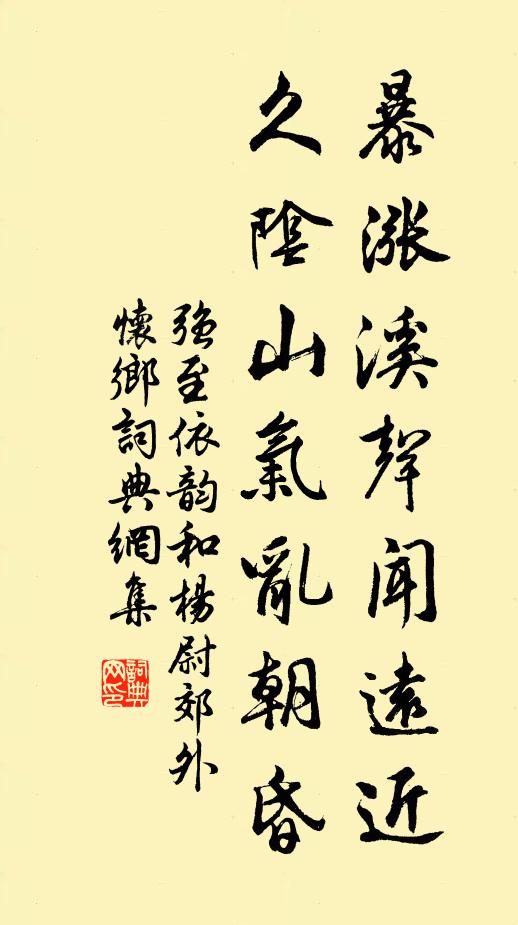 暴漲溪聲聞遠近
久陰山氣亂朝昏
強至依韵和楊尉郊外
懷鄉詞典網集
詞典網印